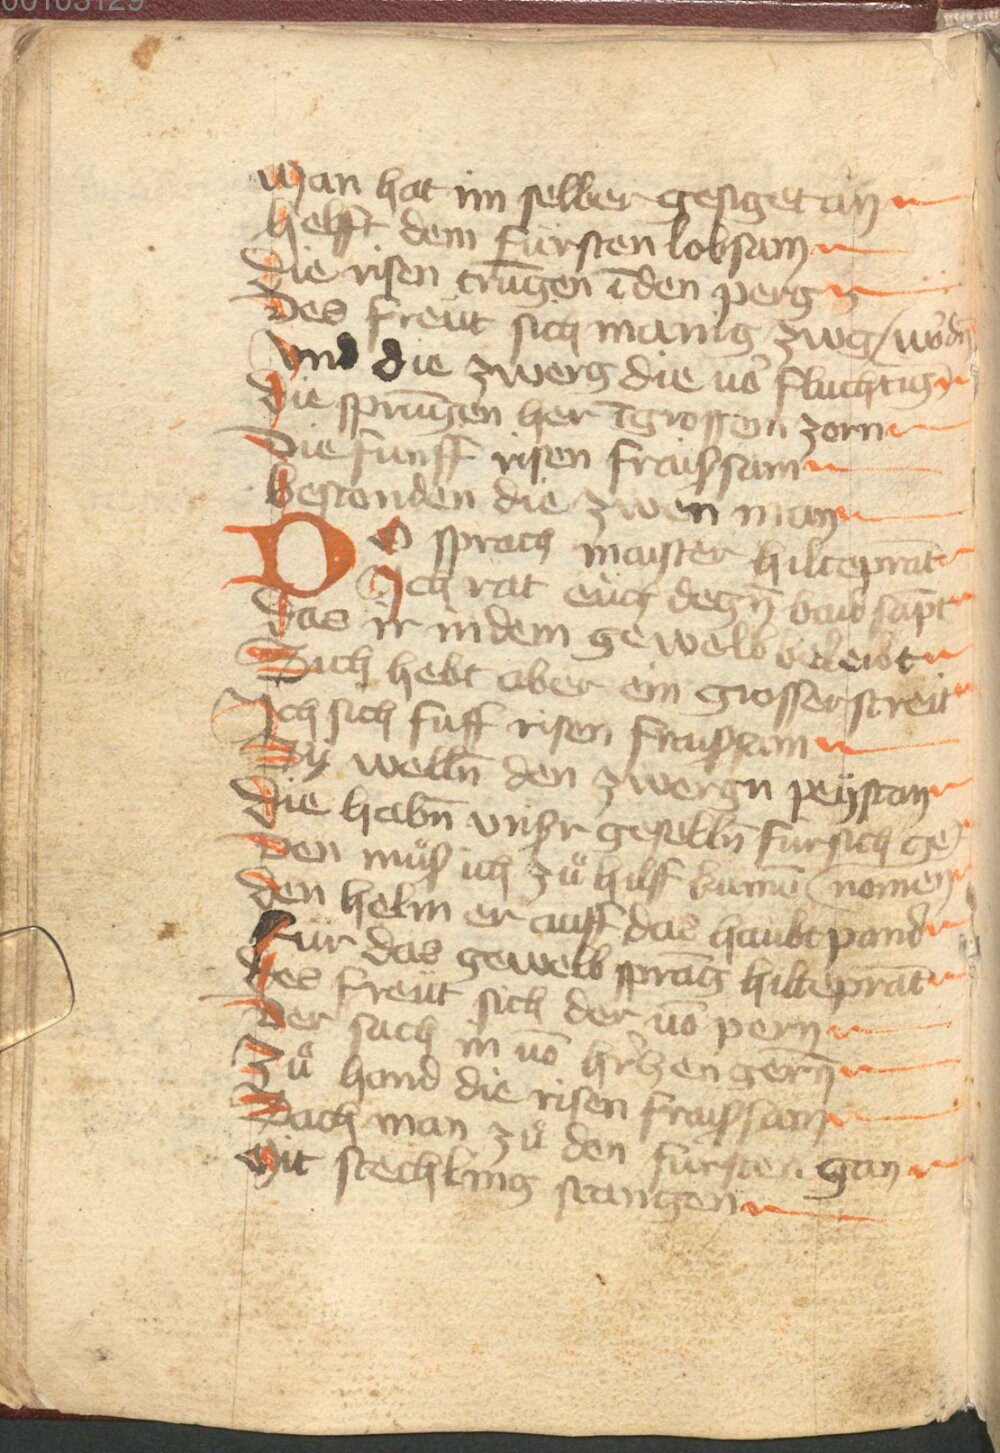 00103129
Man hat im selber gesiget an
helfft dem fürsten lobsam
Die risen trūgen ī den perg
Des freüt sich manig zwg / wordn̄
Vnd die zwerg die vō fluchtig
Die sprūngen her ī grossem zorn
Die funff risen fraißsam
bestonden die zwen man
Do sprach maister hilteprāt
Ich rat eüch degn̄ baid sāpt
Das ir in dem gewelb beleibt
Sich hebt aber ein grosser streit
Ich sich fuff risen fraissam
Sÿ welln̄ den zwergn peÿstan
Die habn̄ vnßr geselln̄ für sich ge
Den müß ich zů hilff kumē (nomen
Den helm er auff das haübt pand
Für das gewelb sprāg hilteprāt
Des freüt sich der vō pern
Der sach in vō hr̄czen gern̄
Zů hand die risen fraißsam
Sach man zů den fürsten gan
Mit stechling stangen